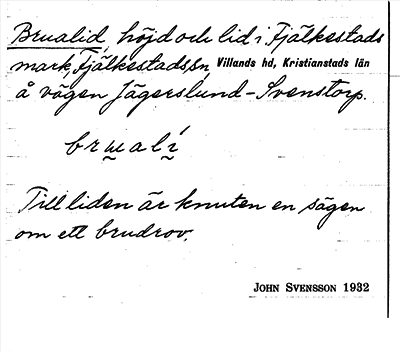 Brualid, höjd och lid i Fjälkestads
mark, Fjälkestads sn, Villands hd, Kristianstads län
å vägen Jägerslund-Svenstorp.
br u̯ a l í̯
Till liden är knuten en sägen
om ett brudrov.
JOHN SVENSSON 1932